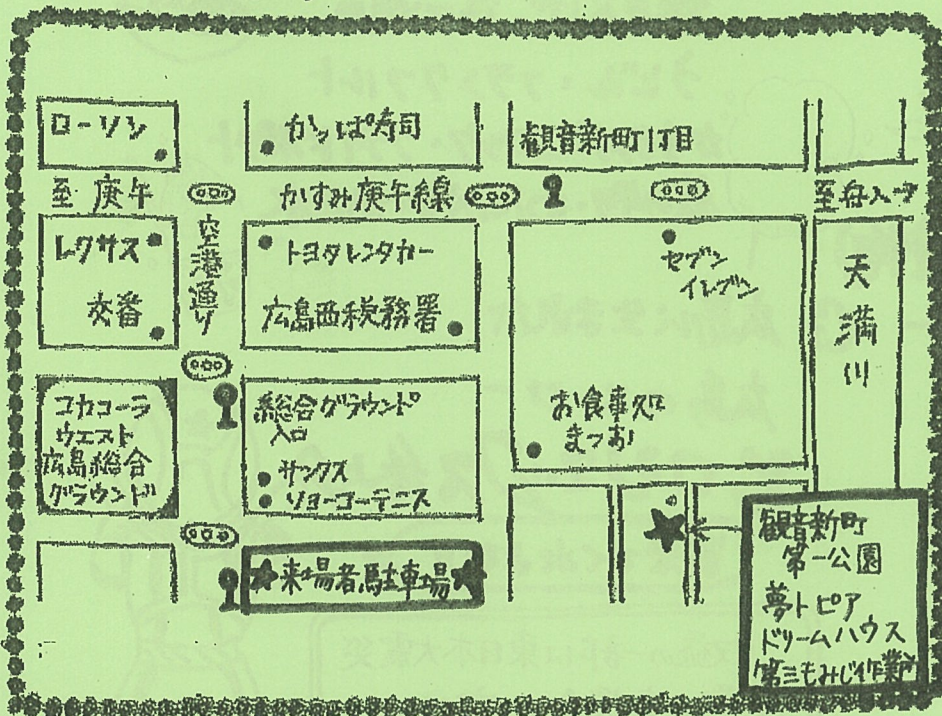 ローソン
かっぱ寿司
観音新町1丁目
至 庚午
かすみ庚午線
至舟入→
レクサス
交番
空港通り
トヨタレンタカー
広島西税務署
セブン
イレブン
天満川
コカコーラ
ウエスト
広島総合
グラウンド
総合グラウンド
入口
サンクス
リョーコーテニス
お食事処
まつお
★来場者駐車場★
観音新町
第一公園
夢トピア
ドリームハウス
第三もみじ作業所